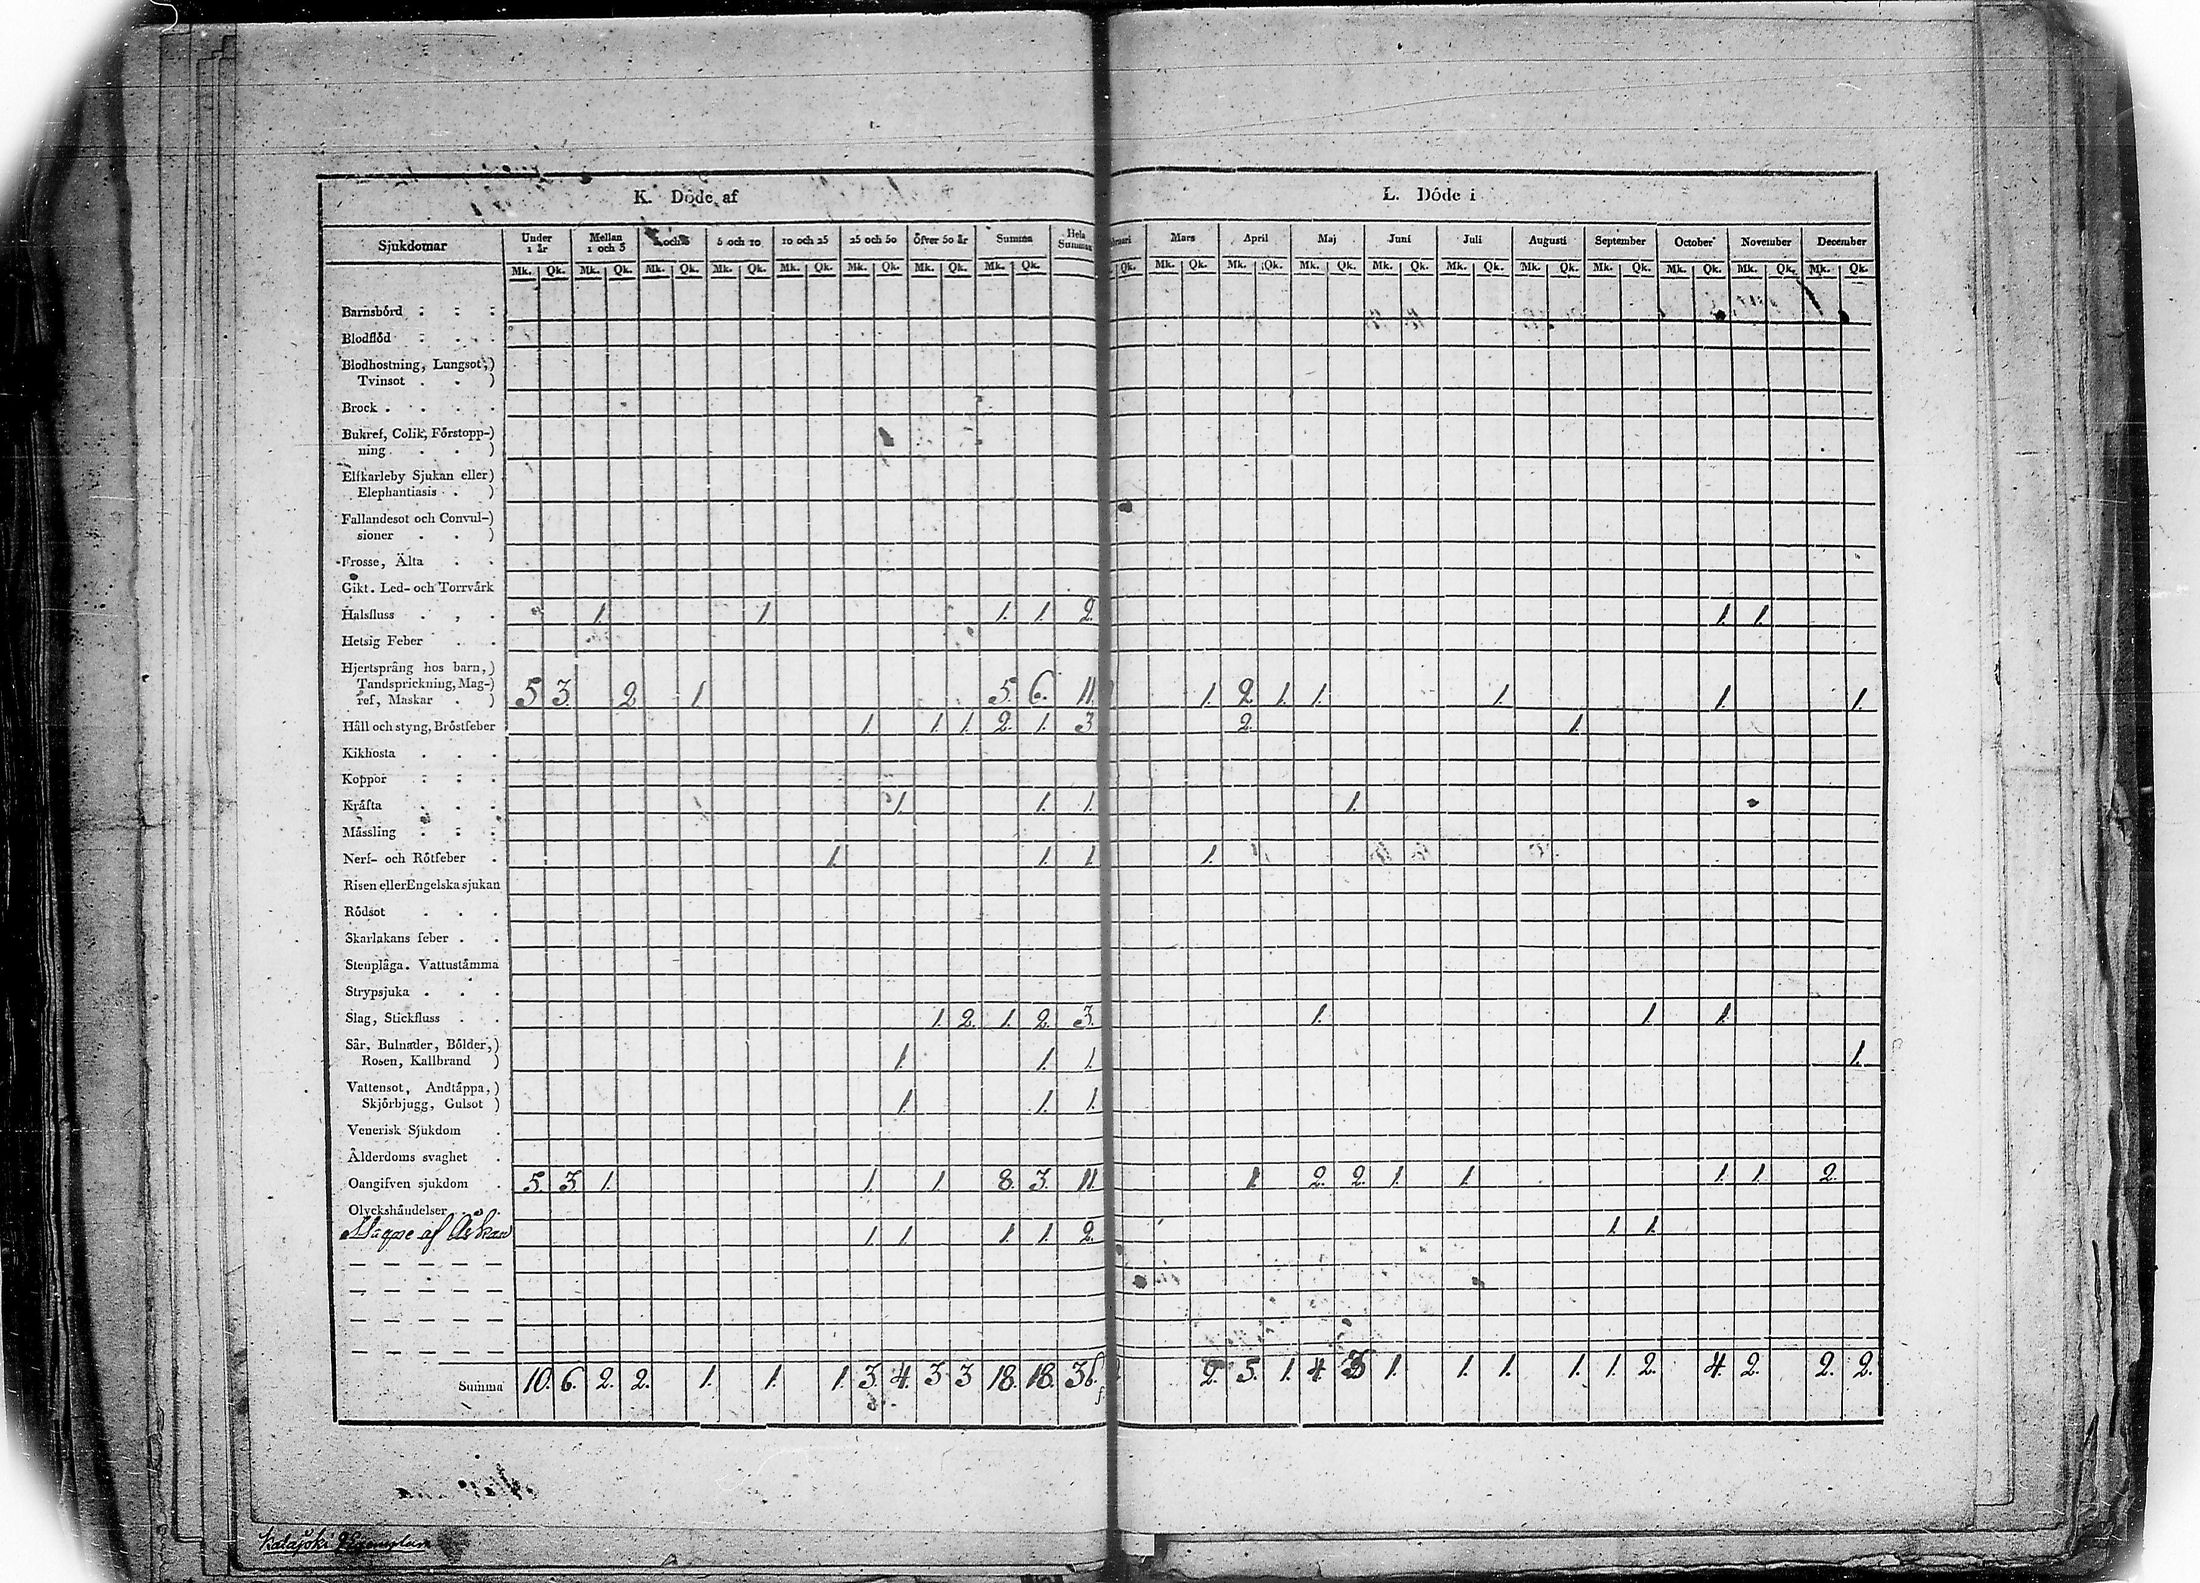 K. Döde af
L. Döde i
Sjukdomar Under 1 år Mellan 1 och 3 5 och 10 10 och 25 25 och 50 Öfver 50 år Summa Hela Summan Mars April Maj Juni Juli Augusti September October November December
Mk. Qk. Mk. Qk. Mk. Qk. Mk. Qk. Mk. Qk. Mk. Qk. Mk. Qk. Mk. Qk. Qk. Mk. Qk. Mk. Qk. Mk. Qk. Mk. Qk. Mk. Qk. Mk. Qk. Mk. Qk. Mk. Qk. Mk. Qk. Mk. Qk.
Barnsbörd
Blodflöd
Blodhostning, Lungsot,)
Tvinsot . . )
Brock . . . .
Bukref, Colik, Förstopp-)
ning . . . )
Elfkarleby Sjukan eller)
Elephantiasis . )
Fallandesot och Convul-)
sioner . . )
Frosse, Älta
Gikt. Led- och Torrvärk
Halsfluss 1. 1. 1. 1. 2. 1. 1.
Hetsig Feber
Hjertsprång hos barn,)
Tandsprickning, Mag-)
ref, Maskar . ) 5. 3. 2. 1. 5. 6. 11. 1. 2. 1. 1. 1. 1. 1.
Håll och styng, Bröstfeber 1. 1. 1. 2. 1. 3. 2. 1.
Kikhosta
Koppor
Kräfta 1. 1. 1. 1.
Mässling
Nerf- och Rötfeber 1. 1. 1. 1.
Risen eller Engelska sjukan
Rödsot
Skarlakans feber
Stenplåga. Vattustämma
Strypsjuka
Slag, Stickfluss 1. 2. 1. 2. 3. 1. 1. 1.
Sår, Bulnader, Bölder,)
Rosen, Kallbrand ) 1. 1. 1. 1.
Vattensot, Andtäppa,)
Skjörbjugg, Gulsot ) 1. 1. 1.
Venerisk Sjukdom
Ålderdoms svaghet
Oangifven sjukdom 5. 3. 1. 1. 1. 8. 3. 11. 1. 2. 2. 1. 1. 1. 1. 2.
Olyckshändelser
af Åskan 1. 1. 1. 1. 2. 1. 1.
Summa 10. 6. 2. 2. 1. 1. 1. 3. 4. 3. 3. 18. 18. 36. 2. 5. 1. 4. 3. 1. 1. 1. 1. 1. 2. 4. 2. 2. 2.